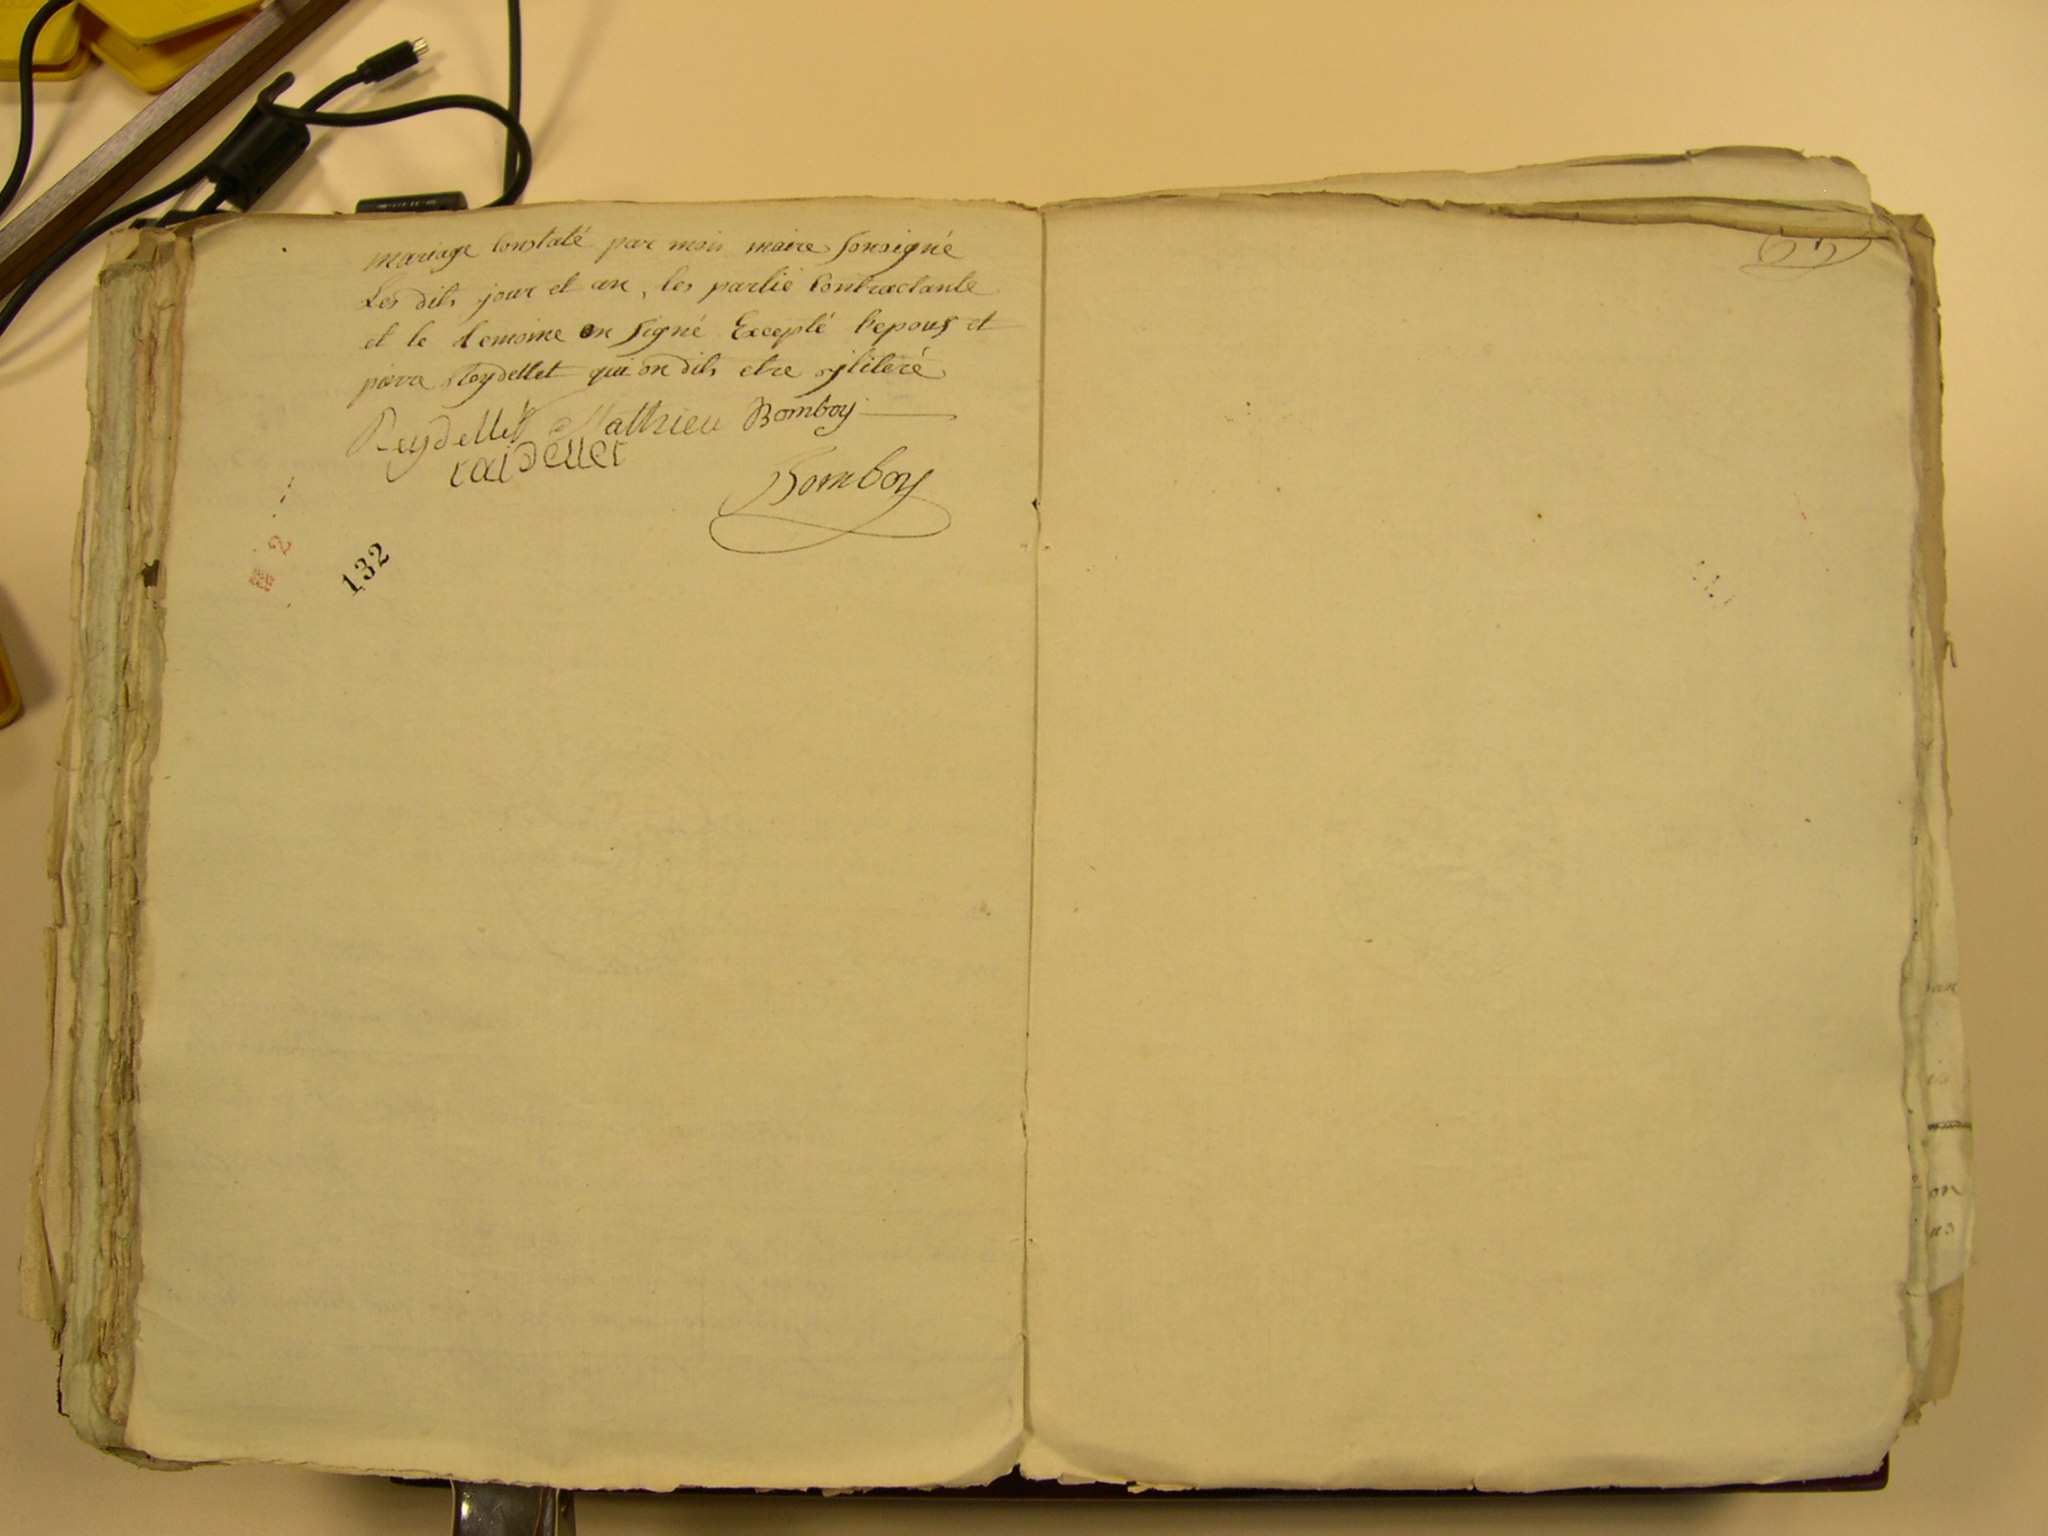 mariage Constaté par moi maire Sonsigné
Les dits jour et an, les partie Contractante
et le temoine on Signé Excepté l'epous et
piera Reydellet qui on dits etre ylitéré
Reydellet Mathieu Bomboy
raidellet
Bomboy
2
132
on